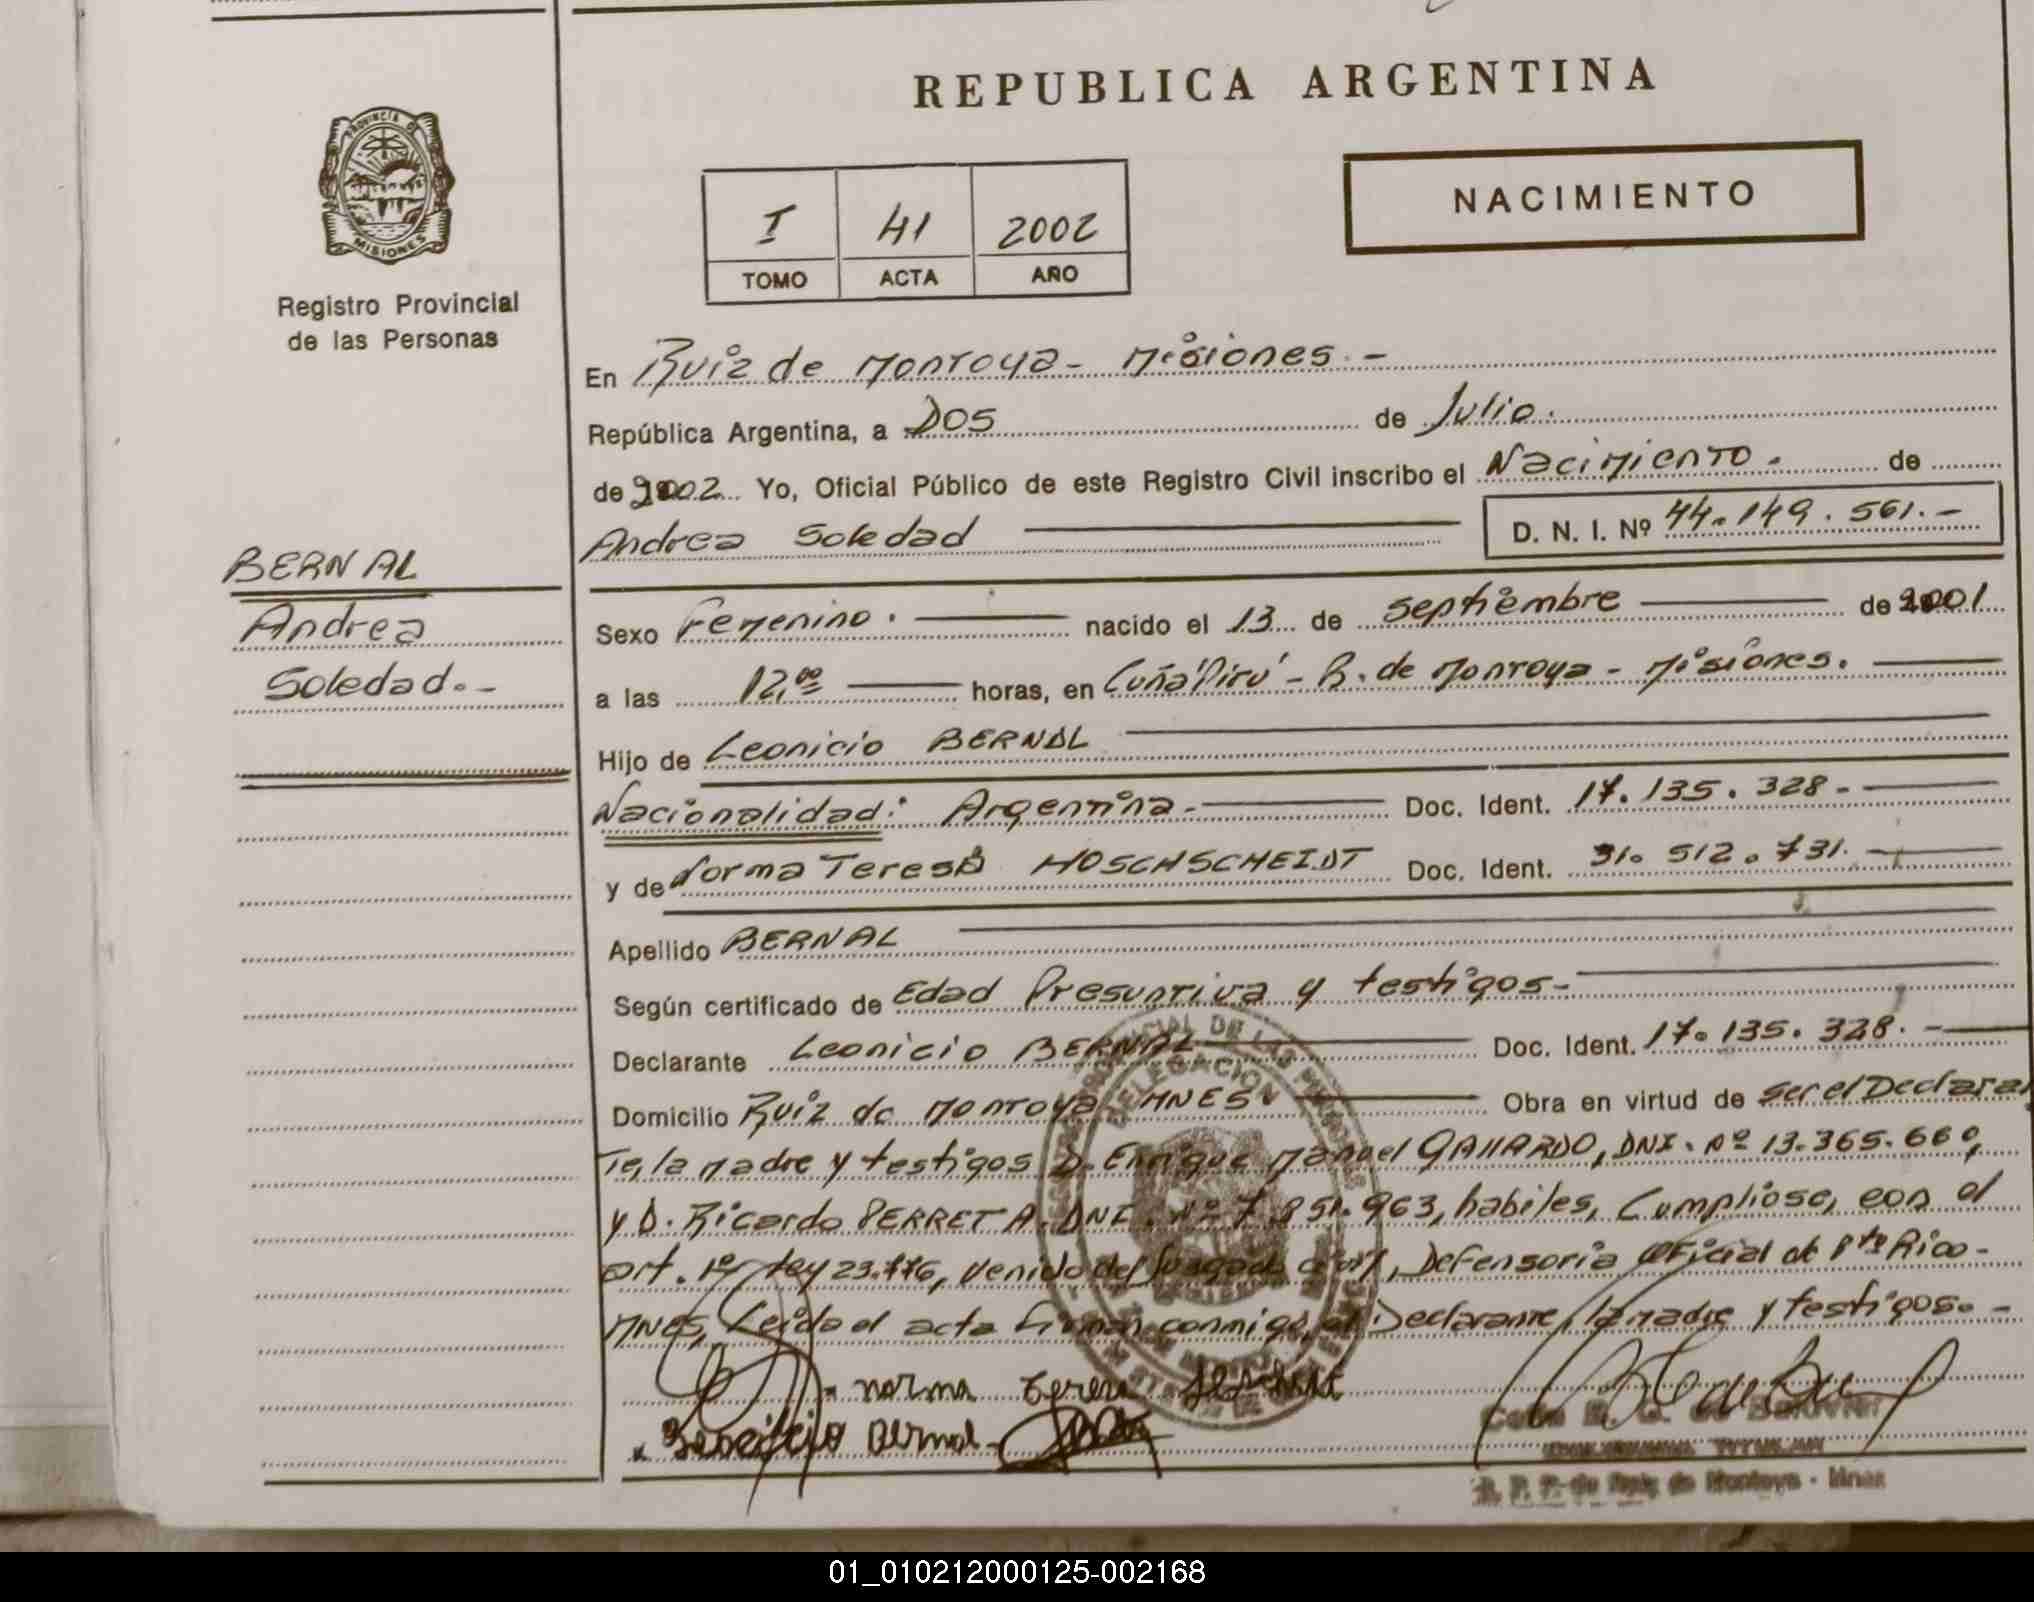 REPUBLICA ARGENTINA
PROVINCIA DE
MISIONES
Registro Provincial
de las Personas
NACIMIENTO
I 41 2002
TOMO ACTA AÑO
En Ruiz de Montoya - Misiones. -
República Argentina, a Dos de Julio.
de 2002 Yo, Oficial Público de este Registro Civil inscribo el Nacimiento. de
Andrea Soledad D. N. I. Nº 44.149.561.-
BERNAL
Andrea
Soledad.-
Sexo Femenino. nacido el 13 de Septiembre de 2001
a las 12,00 horas, en Cuñá Pirú - R. de Montoya - Misiones.
Hijo de Leonicio BERNAL
Nacionalidad: Argentina.- Doc. Ident. 17.135.328.-
y de Norma Teresa HOSCHSCHEIDT Doc. Ident. 31.512.731.
Apellido BERNAL
Según certificado de Edad Presuntiva y testigos-
Declarante Leonicio BERNAL Doc. Ident. 17.135.328.-
Domicilio Ruiz de Montoya MNES. Obra en virtud de ser el Declaran
Te, la madre y testigos D. Enrique Manuel GALLARDO, DNI. Nº 13.365.660,
y D. Ricardo PERRETA. DNI. Nº 7.851.963, habiles, Cumpliose, con el
art. 1º ley 23.776, venido del Juzgado civil, Defensoria Oficial de Pto Rico-
MNES, Leida el acta firman conmigo, el Declarante, la madre y testigos.-
norma
Bernal
DELEGACION
R. P. P. de Ruiz de Montoya - Mnes
01_010212000125-002168